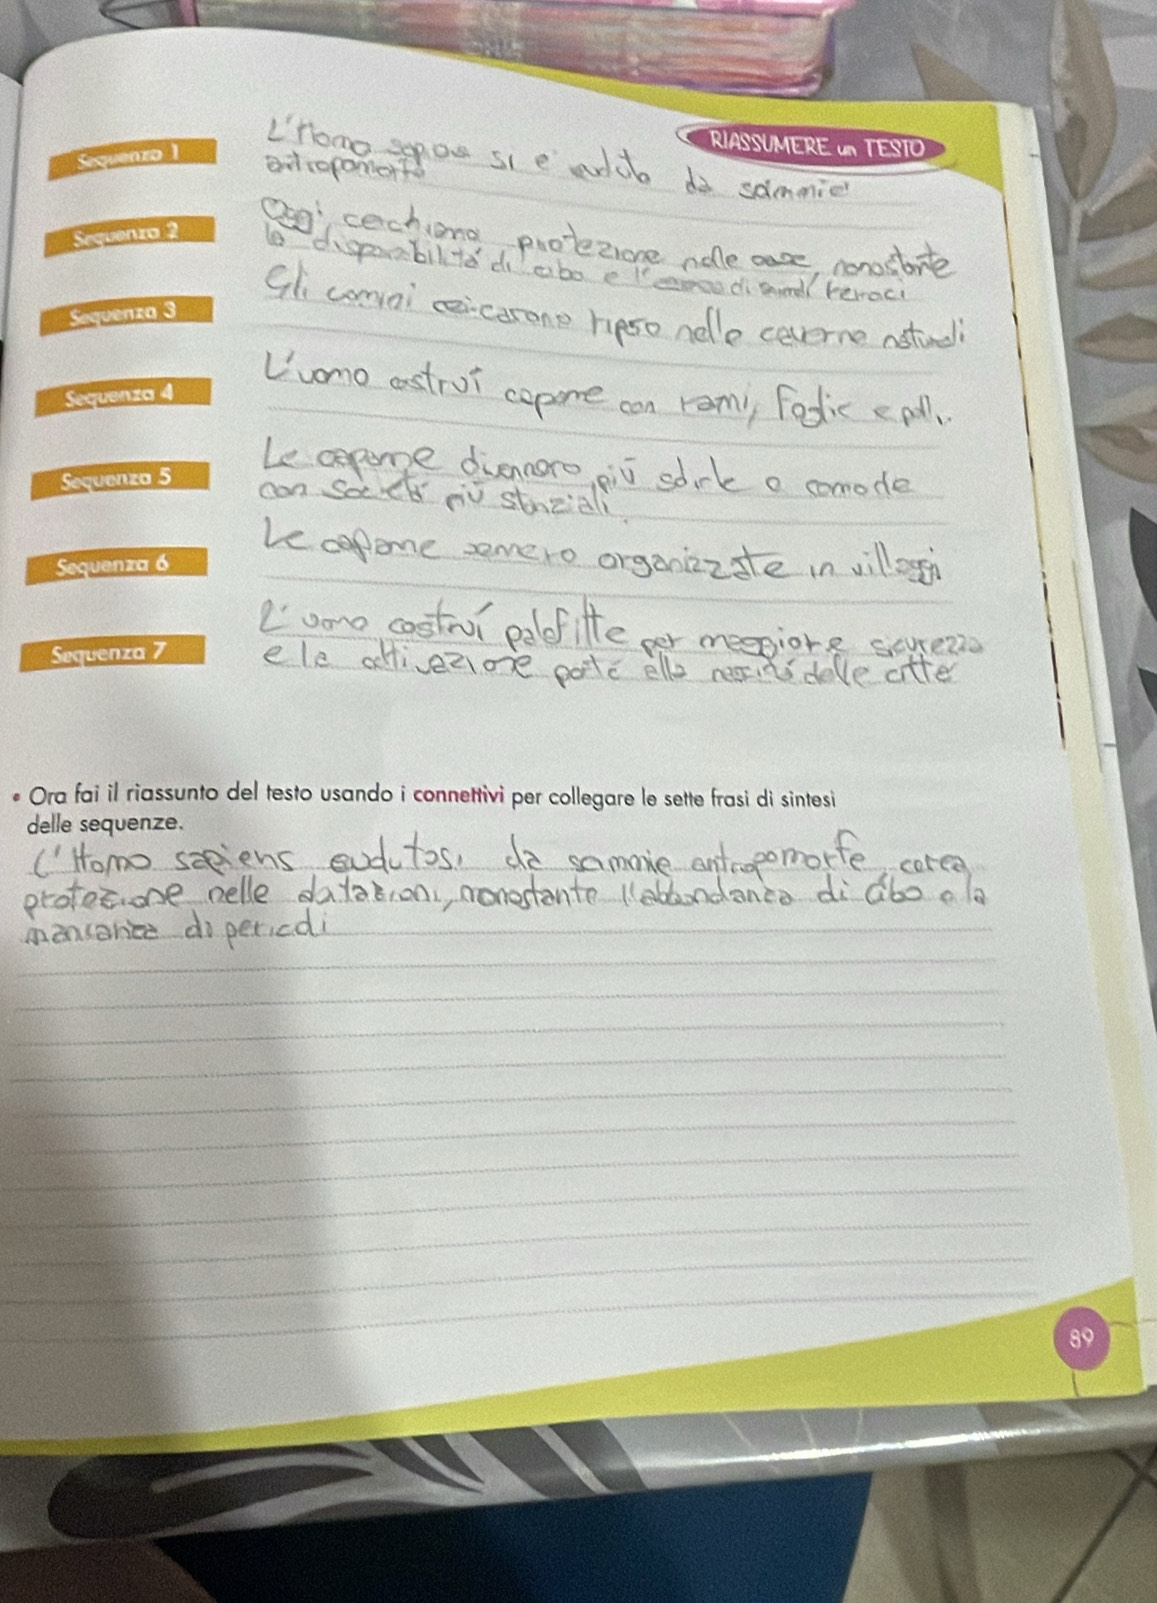 RIASSUMERE un TESTO
Sequenza 1
L'Homo si è da scimmie
Sequenza 2
Oggi protezione nelle case, nonostante
la disponibilità di cibo e di feroci
Sequenza 3
Gli nelle caverne naturali
Sequenza 4
L'uomo costruì capanne con rami, foglie e pelli.
Sequenza 5
Le capanne divennero più e comode
con società più stanziali.
Sequenza 6
Le capanne organizzate in villaggi
Sequenza 7
L'uomo costruì palafitte per maggiore sicurezza
e la portò alla delle città
• Ora fai il riassunto del testo usando i connettivi per collegare le sette frasi di sintesi
delle sequenze.
L'Homo sapiens da scimmie antropomorfe, cerca
protezione nelle nonostante l'abbondanza di cibo e la
mancanza di pericoli
89